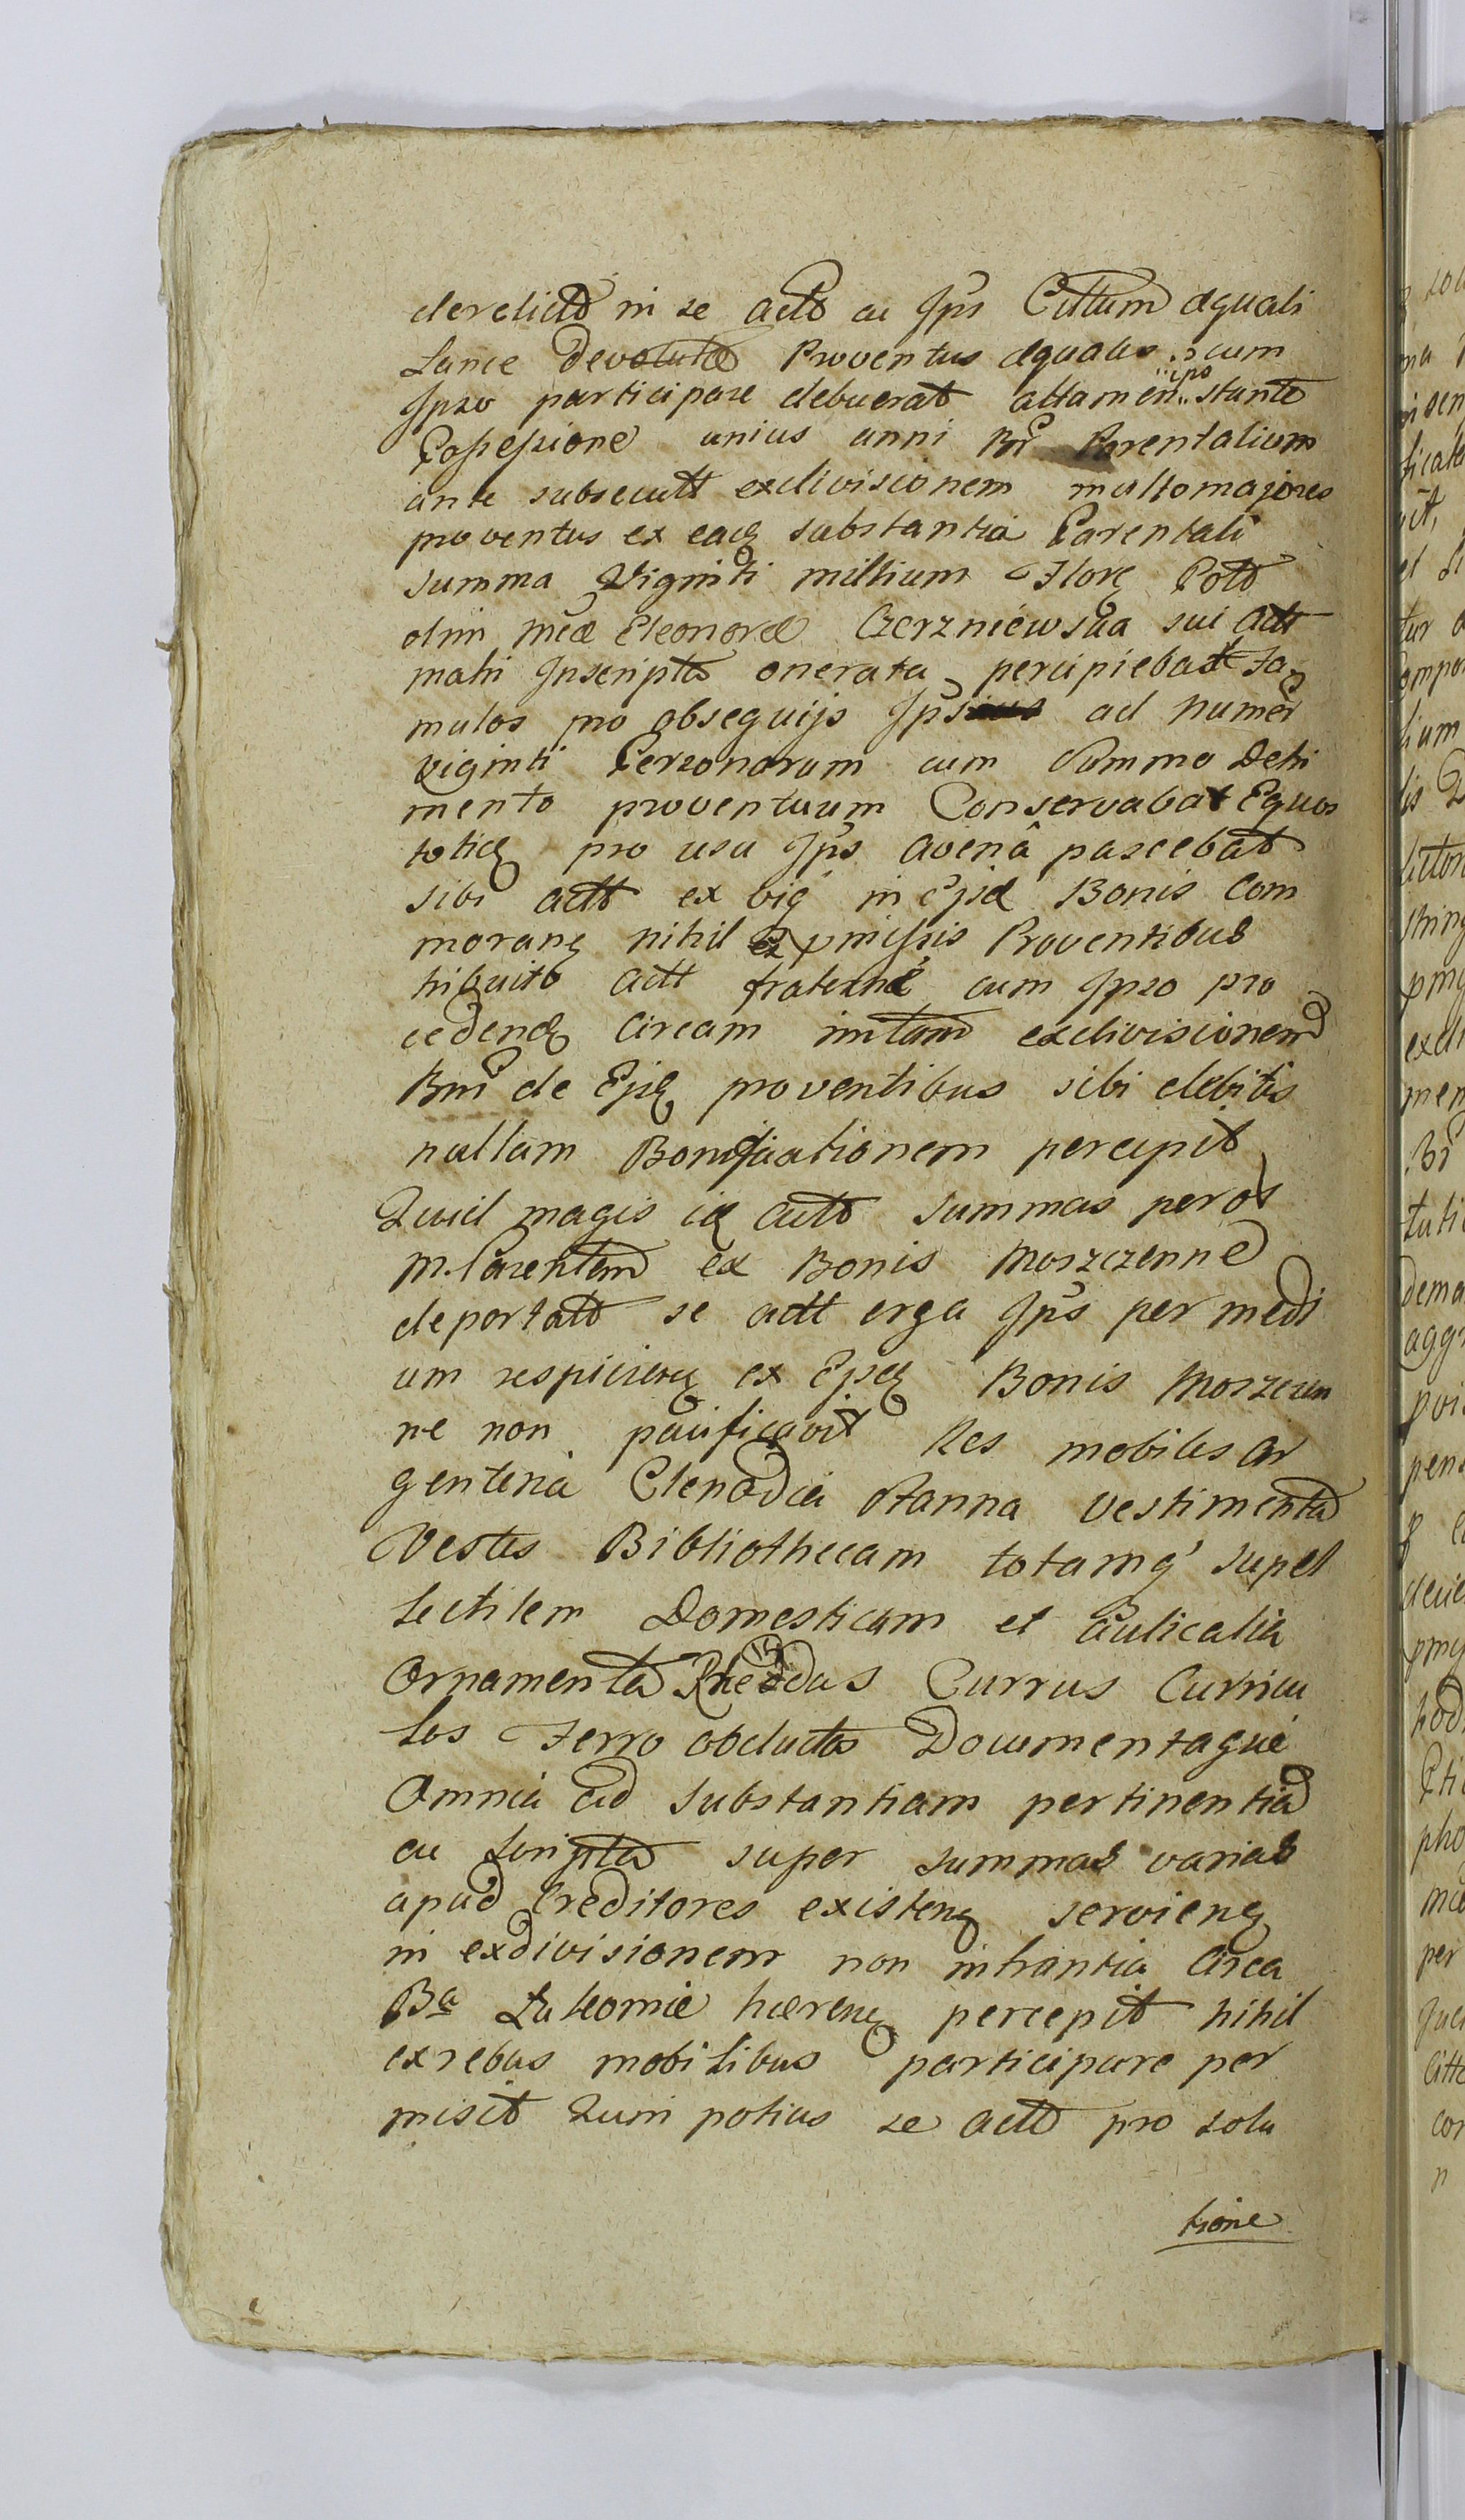 derelict in se act ac Ips Cittum æquali
Lance devolutæ Proventus æquales cum
Ipso participare debuerat attamen ipso stante
Possessione unius anni Br Parentalium
ante subsecutt exdivisionem multo majores
proventus ex eadq substantia Parentali
summa Viginti millium Florq Polo
olim Mcæ Eleonoræ Czerzniewska sui actt
matri Inscripta onerata percipiebat fa
mulos pro obsequijs Ips ad numer
viginti Personarum cum summo Detri
mento proventuum Conservabat Equos
totidq pro usu Ips avenâ pascebat
sibi actt ex vi in Ejsd Bonis Com
moranq nihil ex pmissis Proventibus
tribuit actt fraterne cum Ipso pro
cedendq Circam exdivisionem
Bm de Ejsq proventibus sibi debitis
nullam Bonificationem percepit
Quid magis id actt summas per
M. Parentem ex Bonis Moszczenne
deportatt se actt erga Ips per medi
um respicienq ex Ejsdq Bonis Moszczen
ne non pacificavit Res mobiles Ar
genteria Clenodia Stanna vestimenta
Vestes Bibliothecam totamq supel
lectilem Domesticam et aulicalia
Ornamenta Rhedas Currus Curricu
los Ferro obductos Documentaque
Omnia ad substantiam pertinentia
ac scripta super summas varias
apud Creditores existenq servienq
in exdivisionem non intrantia Circa
Ba Lutomie hærenq percepit nihil
ex rebus mobilibus participare per
misit Quin potius se actt pro solu
tione